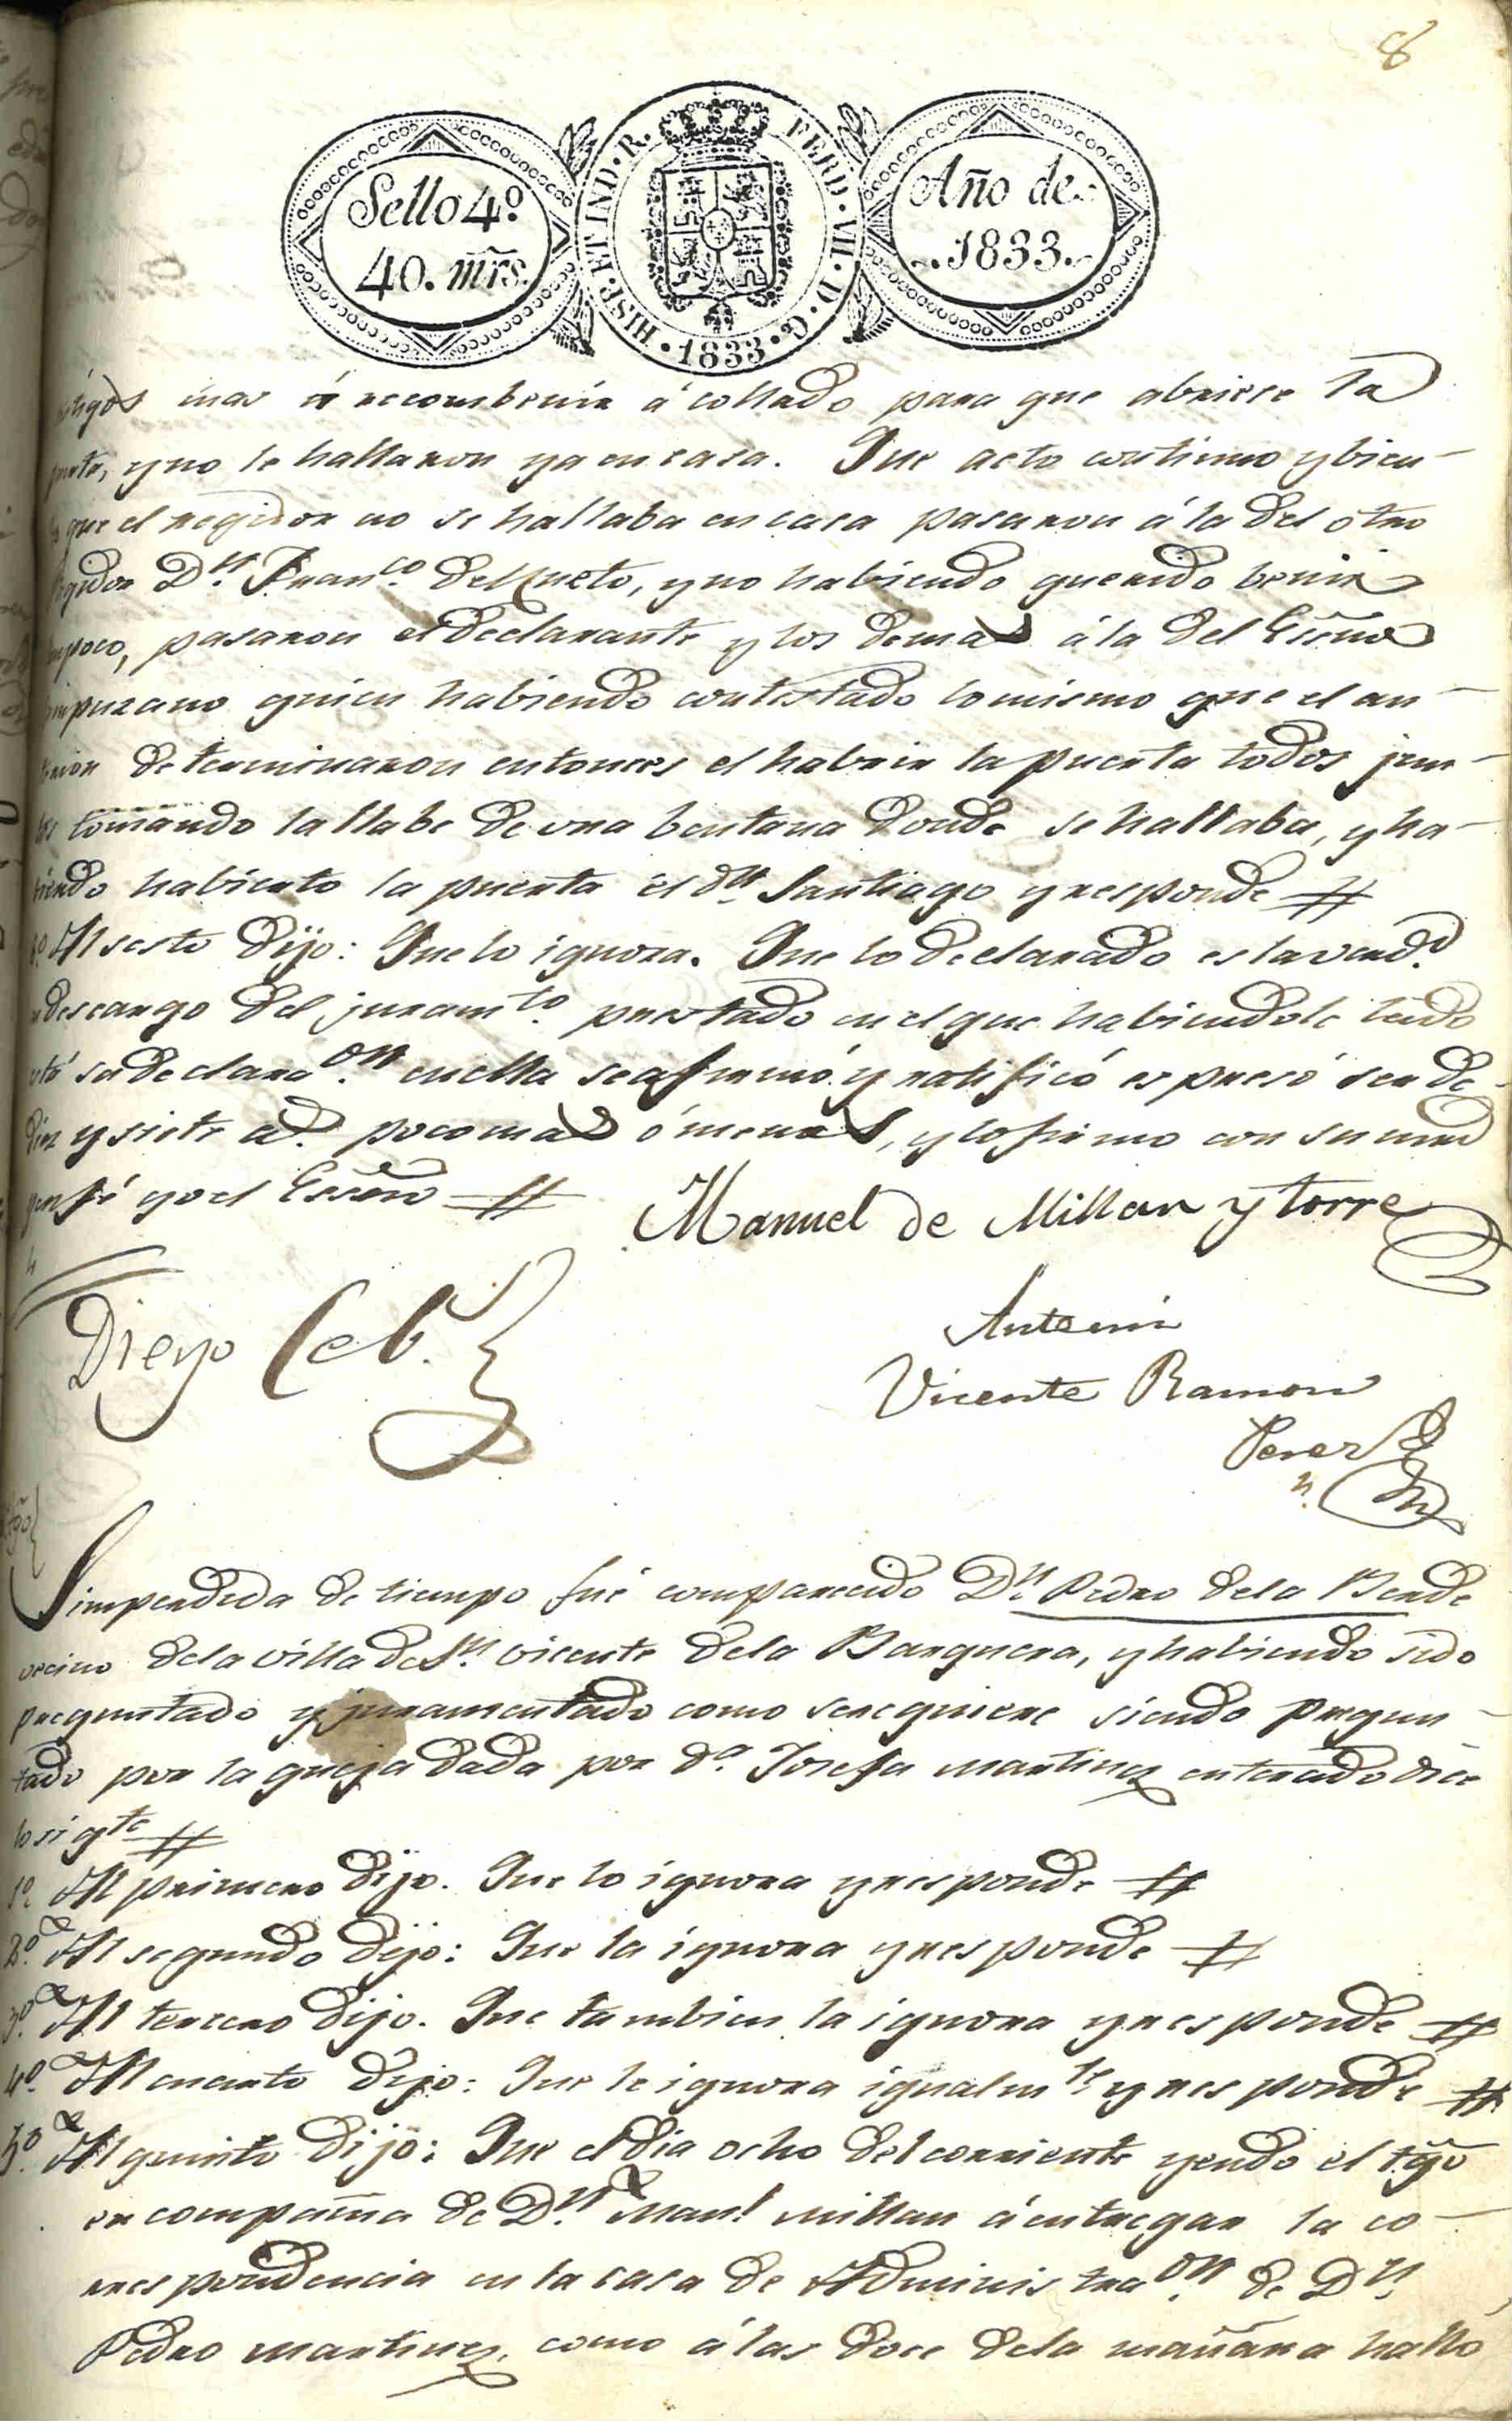 8
Sello 4º
40. mrs.
HISP. ET IND. R. FERD. VII. D. G. 1833.
Año de
1833.
mas á recombenir á collado para que abriese la
y no le hallaron ya en casa. Que acto continuo y bien-
que el regidor no se hallaba en casa pasaron á la del otro
Dn. Franco. del Cueto, y no habiendo querido benir
pasaron el declarante y los demas á la del Esñno
quien habiendo contestado lo mismo que el an-
determinaron entonces el habrir la puerta todos jun-
tomando la llabe de una bentana donde se hallaba, y ha-
biendo habierto la puerta el dn. Santiago y responde #
6º. Al sesto Dijo: Que lo ignora. Que lo declarado es la verdd.
descargo del juramto. prestado en el que habiendole leido
su declaraon. en ella se afirmó y ratificó espresó ser de
diez y siete as. poco mas ó menos, y lo firmo con su md
yo el Essno #
Manuel de Millan y torre
Diego Ceb.
Antemi
Vicente Ramon
Perez
Simperdida de tiempo fué comparecido Dn. Pedro dela Bende
vecino dela villa de Sn. vicente dela Barquera, y habiendo sido
preguntado y juramentado como se requiere siendo pregun-
tado por la queja dada por da. Josefa martinez enterado dice
lo sigte #
1º. Al primero Dijo. Que lo ignora y responde #
2º. Al segundo Dijo: Que la ignora y responde #
3º. Al tercero Dijo. Que tambien la ignora y responde #
4º. Al cuarto Dijo: Que le ignora igualmte. y responde #
5º. Al quinto Dijo: Que el dia ocho del corriente yendo el tgo
en compañia de Dn. Manl. millan á entregar la co-
rrespondencia en la casa de Administraon. de Dn.
Pedro martinez, como á las doce dela mañana halló